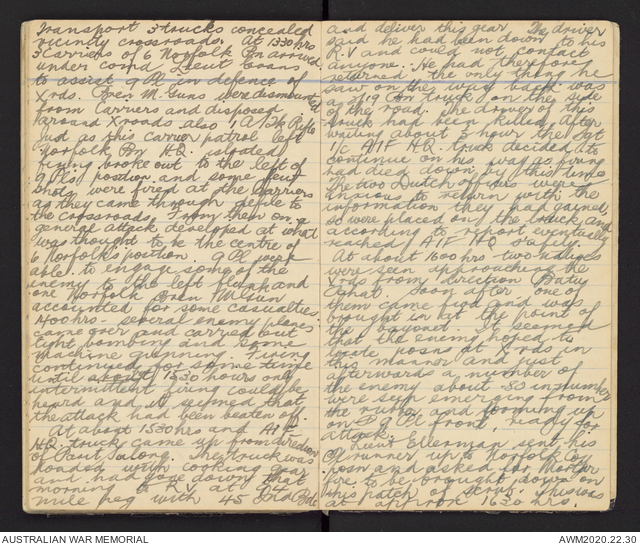 Transport 3 trucks concealed
vicinity crossroads. At 1330 hrs
3 Carriers of 6 Norfolk Bn arrived
under comd Lieut Evans
to assist 9 Pl in defence of
Xrds. Bren M. Guns were dismounted
from Carriers and disposed
around Xroads also 1 A/Tk Rifle
Just as this carrier patrol left
Norfolk Bn HQ. isolated
firing broke out to the left of
9 Pls position and some few
shots were fired at the Carriers
as they came through defile to
the crossroads. From then on a
general attack developed at what
was thought to be the centre of
6 Norfolks position. 9 Pl were
able to engage some of the
enemy to the left flank and
one Norfolk Bren M. Gun
accounted for some casualties.
1400 hrs - several enemy planes
came over and carried out
light bombing and some
machine gunning. Firing
continued for some time
until about 1530 hours only
intermittent firing could be
heard and it seemed that
the attack had been beaten off.
At about 1530 hrs and AIF
HQ. truck came up from direction
of Parit Salong. The truck was
loaded with cooking gear
and had gone down that
morning to RV at 94
mile peg with 45 Ind Bde
and deliver this gear. The driver
said he had been down to his
R.V and could not contact
anyone. He had therefore
returned & the only thing he
saw on the way back was
a 2/19 Bn truck on the side
of the road. The driver of this
truck had been killed. After
waiting about ½ hour the Sgt
i/c AIF HQ. truck decided to
continue on his way as firing
had died down by this time
The two Dutch officers were
anxious to return with the
information they had gained,
so were placed on the truck and
according to report eventually
reached AIF HQ safely.
At about 1600 hrs two natives
were seen approaching the
Xrds from direction Batu
Pahat. Soon after one of
them came fwd and was
brought in at the point of
the bayonet. It seemed
that the enemy hoped to
locate posns at Xrds in
this manner and just
afterwards a number of
the enemy about 80 in number
were seen emerging from
the rubber and forming up
on 9 Pl front, ready for
attack.
Lieut Ellerman sent his
Pl runner up to Norfolk Coy
posn and asked for Mortar
fire to be brought down on
this patch of scrub. This was
at approx 1630 hrs.
AUSTRALIAN WAR MEMORIAL
AWM2020.22.30